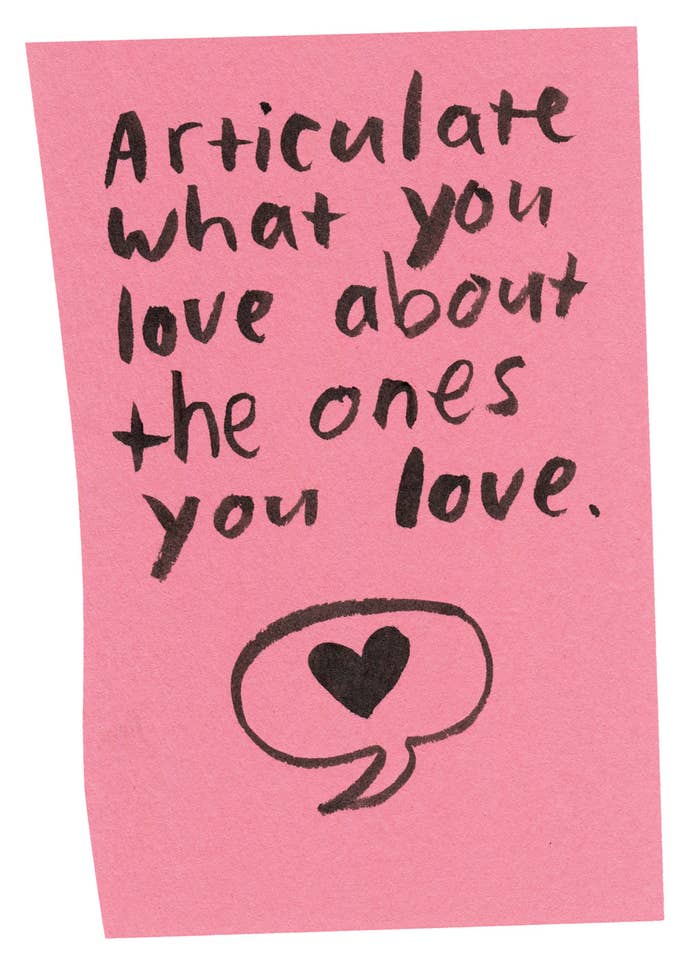 Articulate
what you
love about
the ones
you love.